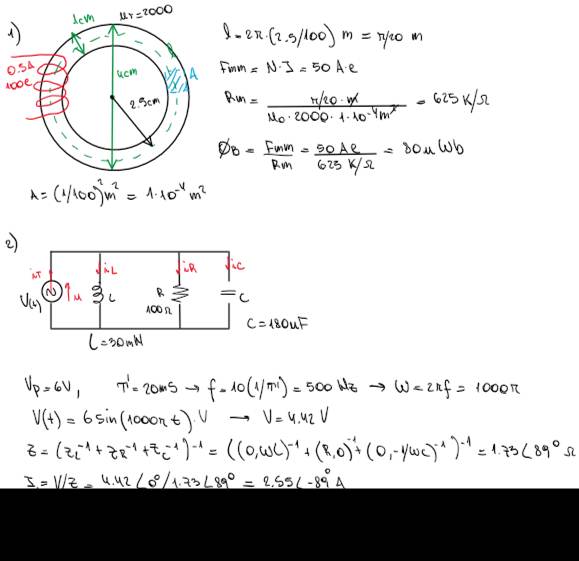 1)
1cm
μr=2000
0.5A
100e
4cm
2.5cm
A
l = 2π·(2.5/100) m = π/20 m
Fmm = N·I = 50 A·e
Rm = π/20·m / μ0·2000·1·10⁻⁴m² = 625 K/Ω
ØB = Fmm/Rm = 50 Ae / 625 K/Ω = 80μ Wb
A = (1/100)²m² = 1·10⁻⁴ m²
2)
iT
iL
iR
iC
V(t)
u
L
R
100Ω
C
C=180uF
L=30mH
Vp=6V, T'=20ms → f=10(1/T')=500 Hz → ω=2πf = 1000π
V(t) = 6 sin(1000πt) V → V=4.42 V
Z = (ZL⁻¹+ZR⁻¹+ZC⁻¹)⁻¹ = ((0,ωL)⁻¹+(R,0)⁻¹+(0,-1/ωC)⁻¹)⁻¹ = 1.73∠89° Ω
I = V/Z = 4.42∠0°/1.73∠89° = 2.55∠-89° A